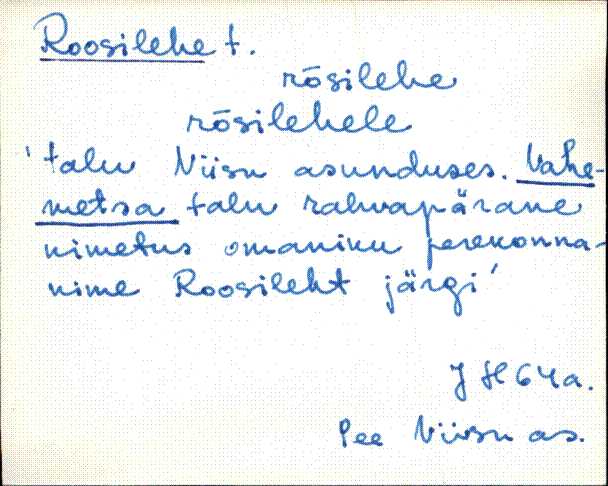 Roosilehe t.
rõsilehe
rõsilehele
'talu Viisu asunduses. Vahe-
metsa talu rahvapärane
nimetus omaniku perekonna-
nime Roosileht järgi'
J H 64a.
Pee Viisu as.